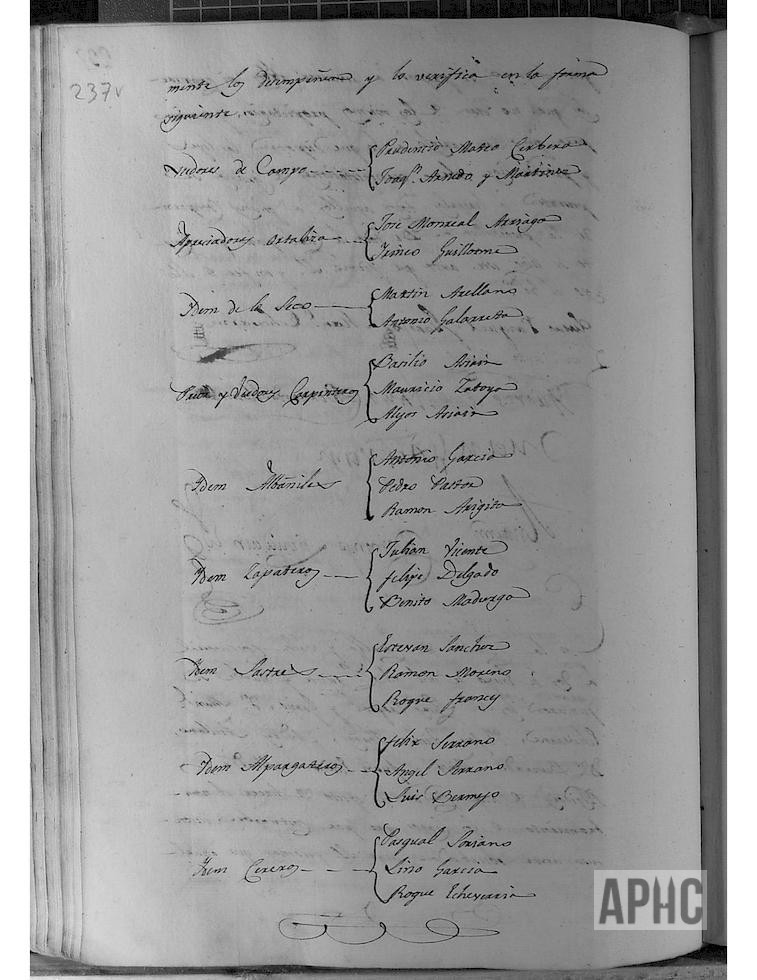 237v
mente los desempeñan y lo verificó en la forma
siguiente.
Veedores de Campo
Prudencio Mateo Cerbera
Joaqn. Arnedo y Martinez
Apreciadores ortaliza
Jose Monreal Arriaga
Guillorme
Idem de la Seco
Martin Arellano
Antonio Galarreta
Prior y Veedores Carpinteros
Basilio Asiain
Mauricio Zatoya
Alejos Asiain
Idem Albañiles
Antonio Garcia
Pedro Pastor
Ramon Arigita
Idem Zapateros
Julian Vicente
Felipe Delgado
Benito Madurga
Idem Sastres
Estevan Sanchez
Ramon Moreno
Roque frances
Idem Alpargateros
felix Serrano
Angel Serrano
Luis Bermejo
Idem Cereros
Pasqual Soriano
Lino Garcia
Roque Echevarria
APHC